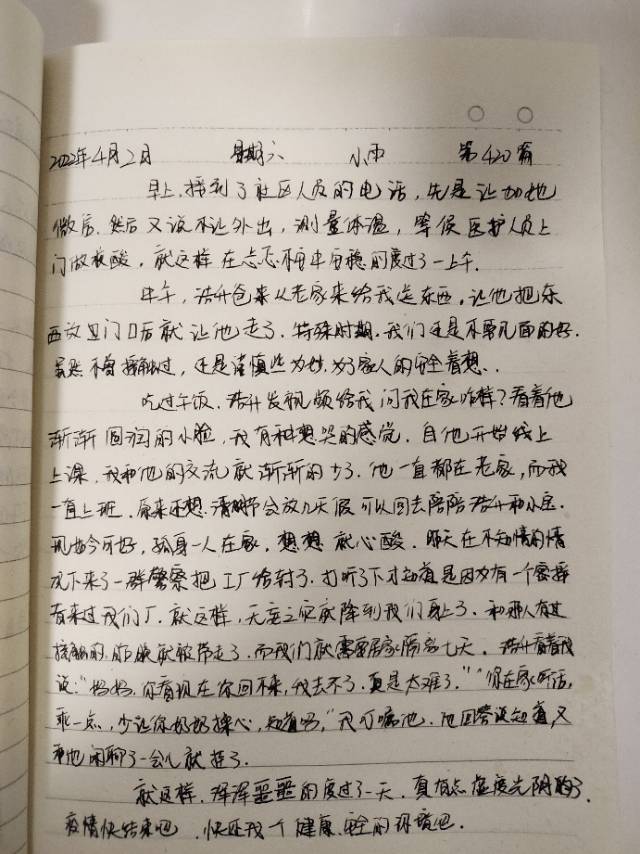 2022年4月2日 星期六 小雨 第420篇
早上,接到了社区人员的电话,先是让加地
微信.然后又说不让外出,测量体温,等候医护人员上
门做核酸,就这样在忐忑不安中安稳的度过了一上午.
中午,浩升爸来从老家来给我送东西,让他把东
西放里门口后就让他走了.特殊时期.我们还是不要见面的好.
虽然不曾接触过,还是谨慎些为妙.为了家人的安全着想.
吃过午饭.浩升发视频给我问我在家咋样?看着他
渐渐圆润的小脸,我有种想哭的感觉.自他开始线上
上课,我和他的交流就渐渐的少了.他一直都在老家,而我
一直上班.原来还想.清明节会放几天假可以回去陪陪浩升和小宝.
现如今可好,孤身一人在家,想想就心酸.昨天在不知情的情
况下来了一群警察把工厂给封了.打听了下才知道是因为有一个密接
者来过我们厂.就这样,无妄之灾就降到我们身上了.和那人有过
接触的.昨晚就被带走了.而我们就需要居家隔离七天.浩升看着我
说:"妈妈.你看现在你回不来,我去不了.真是太难了.""你在家听话,
乖一点,少让你奶奶操心,知道吗,"我叮嘱他.他回答说知道,又
和他闲聊了一会儿就挂了.
就这样.浑浑噩噩的度过了一天.真有点虚度光阴的了.
疫情快结束吧.快还我一个健康.安全的环境吧.